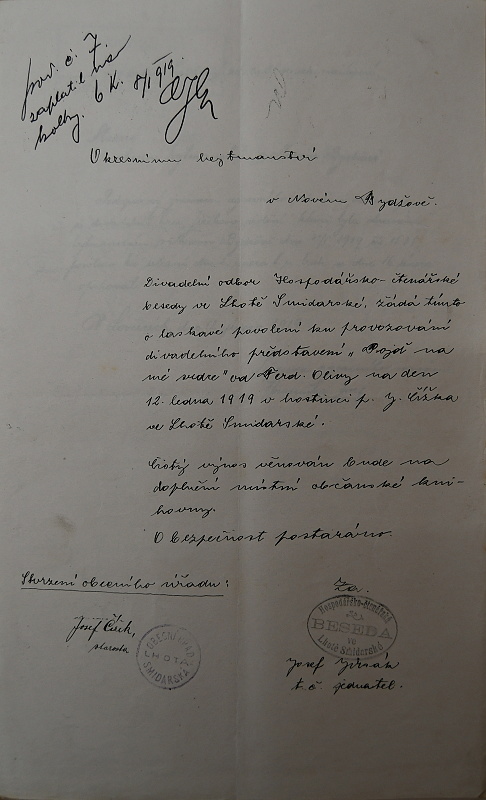 pod. č. 7
zaplatil
kolky. 6 K. 8/I 919.
Okresnímu hejtmanství
v Novém Bydžově.
Divadelní odbor Hospodářsko-čtenářské
besedy ve Lhotě Smidarské, žádá tímto
o laskavé povolení ku provozování
divadelního představení „Pojď na
mé srdce" od Ferd. Olivy na den
12. ledna 1919 v hostinci p. J. Čížka
ve Lhotě Smidarské.
Čistý výnos věnován bude na
doplnění místní občanské kni-
hovny.
O bezpečnost postaráno.
Stvrzení obecního úřadu:
Josef
starosta
OBECNÍ ÚŘAD
LHOTA
SMIDARSKÁ
Za.
Hospodářsko-čtenářská
BESEDA
ve
Lhotě Smidarské
Josef
t. č. jednatel.